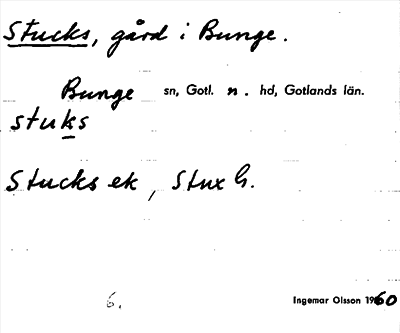 Stucks, gård i Bunge.
Bunge sn, Gotl. n. hd, Gotlands län.
stuks
Stucks ek, Stux G.
6. Ingemar Olsson 1960